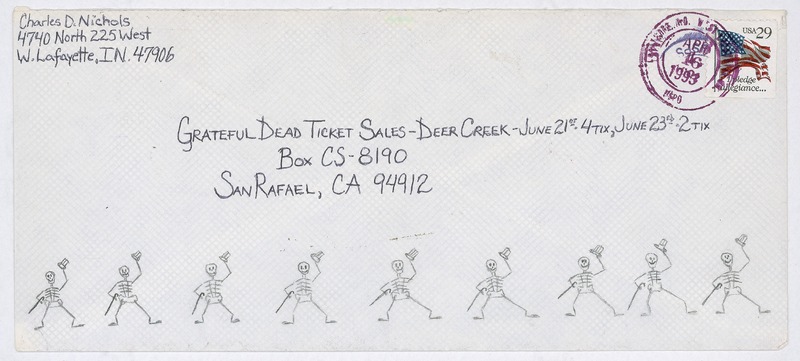 Charles D. Nichols
4740 North 225 West
W. Lafayette, IN. 47906
APR
16
1993
MPO
USA 29
I pledge
allegiance...
GRATEFUL DEAD TICKET SALES-DEER CREEK-JUNE 21ST-4TIX, JUNE 23rd-2TIX
Box CS-8190
SAN RAFAEL, CA 94912